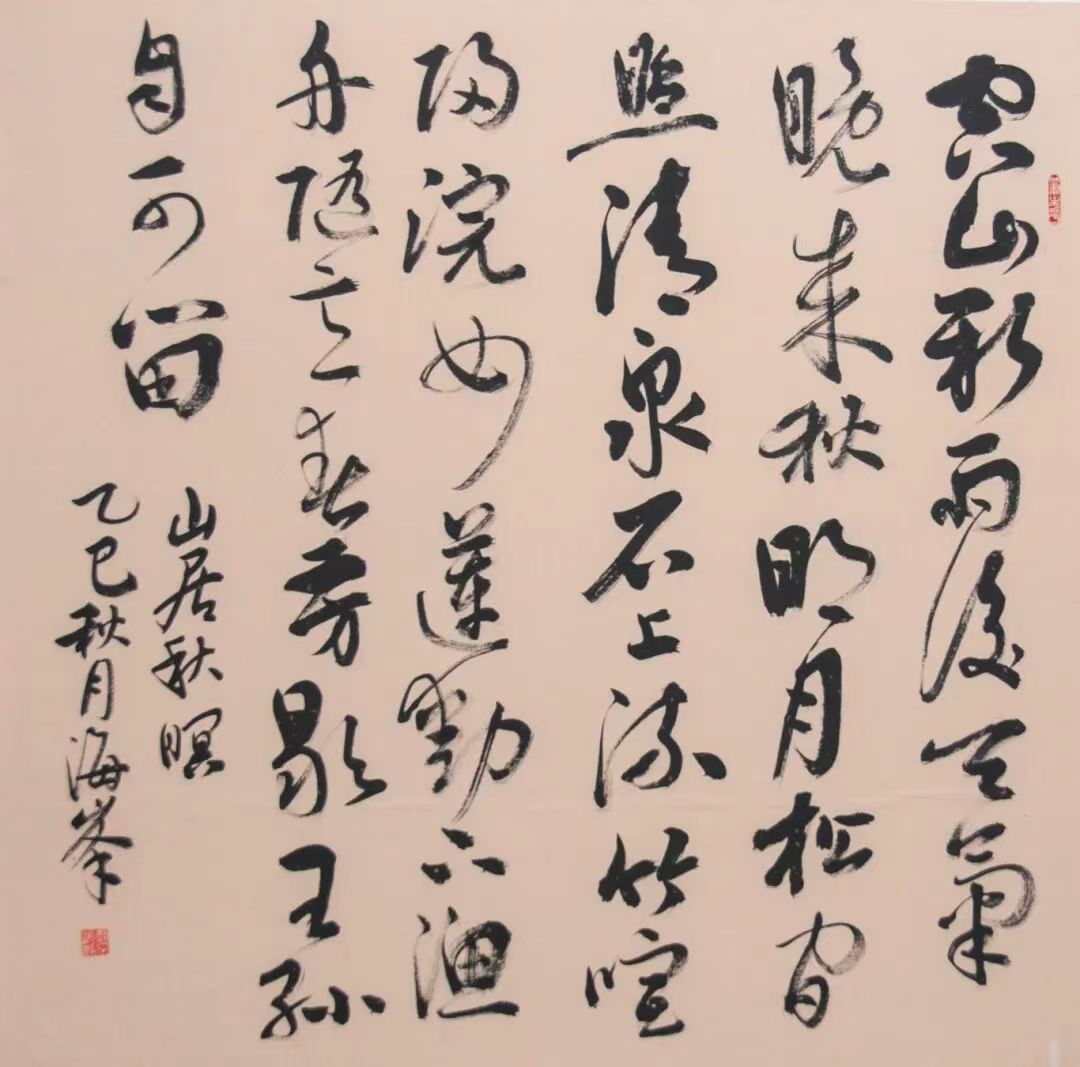 空山新雨後天氣
晚来秋明月松间
照清泉石上流竹喧
归浣女蓮動下漁
舟随意春芳歇王孫
自可留
山居秋暝
乙巳秋月海峯